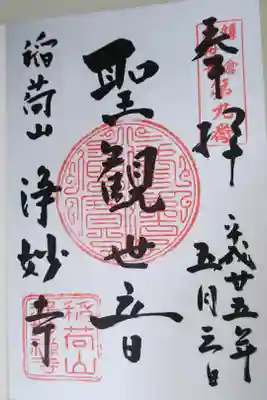 奉拝
平成廿五年
五月三日
聖観世音
稲荷山 浄妙寺
稲荷山